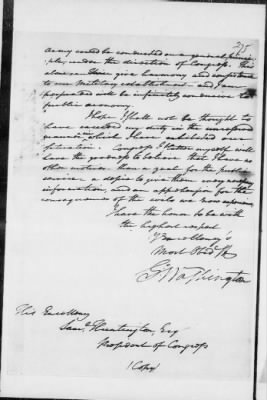 215
Army could be conducted on a general princi-
ple, under the direction of Congress. This
alone can give harmony and consistency
to our Military establishment - and I am
persuaded will be infinitely conducive to
public economy.
I hope I shall not be thought to
have exceeded my duty in the unreserved
manner in which I have exhibited our
situation. Congress I flatter myself will
have the goodness to believe that I have no
other motives than a zeal for the public
service, a desire to give them every
information, and an apprehension for the
consequences of the evils we now experience.
I have the honor to be with
the highest respect
Your Excellency's
Most Obed St
G Washington
His Excellency
Saml Huntington, Esq
President of Congress
(Copy)